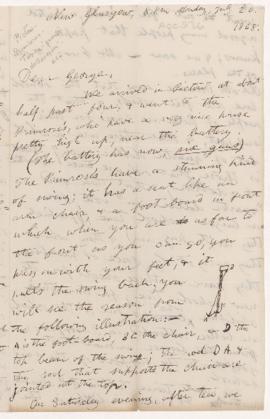 New Glasgow, 8 P.M. Monday June 20.
1868.
Dear George,
We arrived in Pictou, at about
half past four, & went to the
Primroses, who have a very nice house
pretty high up, near the battery.
(The battery has now, one gun)
The Primroses have a stunning kind
of swing: it has a seat like an
arm chair, & a foot board in front
which when you are as far to
the front as you can go, you
press with your feet, & it
pulls the swing back; you
will see the reason from
the following illustration:—
A is the foot-board, B C the chair, & D the
top beam of the swing; the rod D A &
the rod that supports the chair are
jointed at the top.
On Saturday evening, after tea we